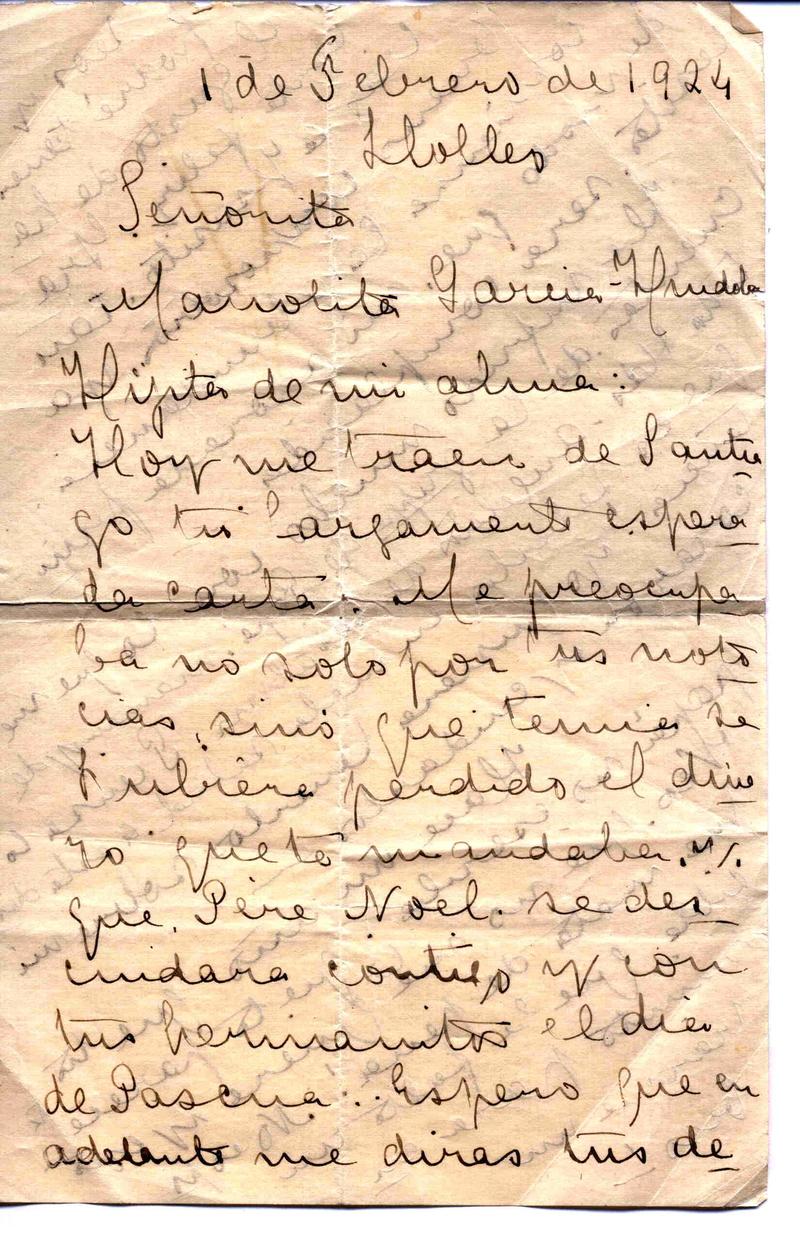 1 de Febrero de 1924
Llolleo
Señorita
Manolita Garcia-Huidobro
Hijita de mi alma:
Hoy me traen de Santia
go tu largamente espera
da carta. Me preocupa
ba no solo por tus noti
cias, sino que temia se
hubiera perdido el dine
ro que te mandaba, y
que Père Noel se des
cuidara contigo y con
tus hermanitos el dia
de Pascua... Espero que en
adelante me diras tus de